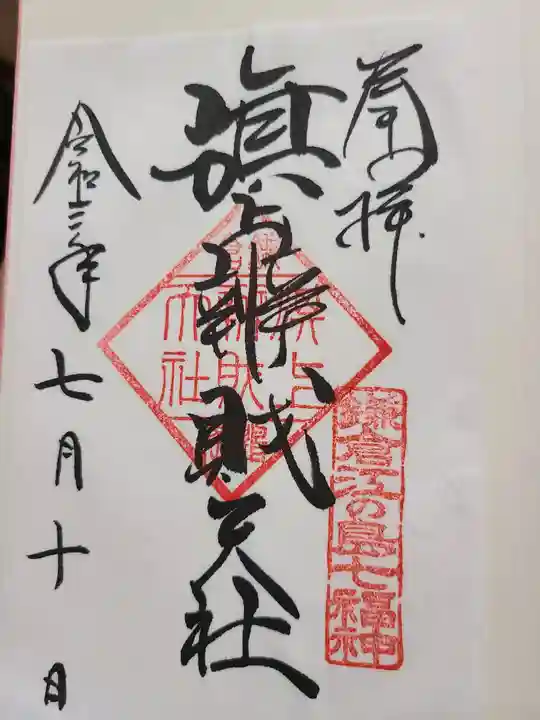 奉拝
鎌倉江の島七福神
旗上辨財天社
旗上
辨財
天社
令和三年七月十日